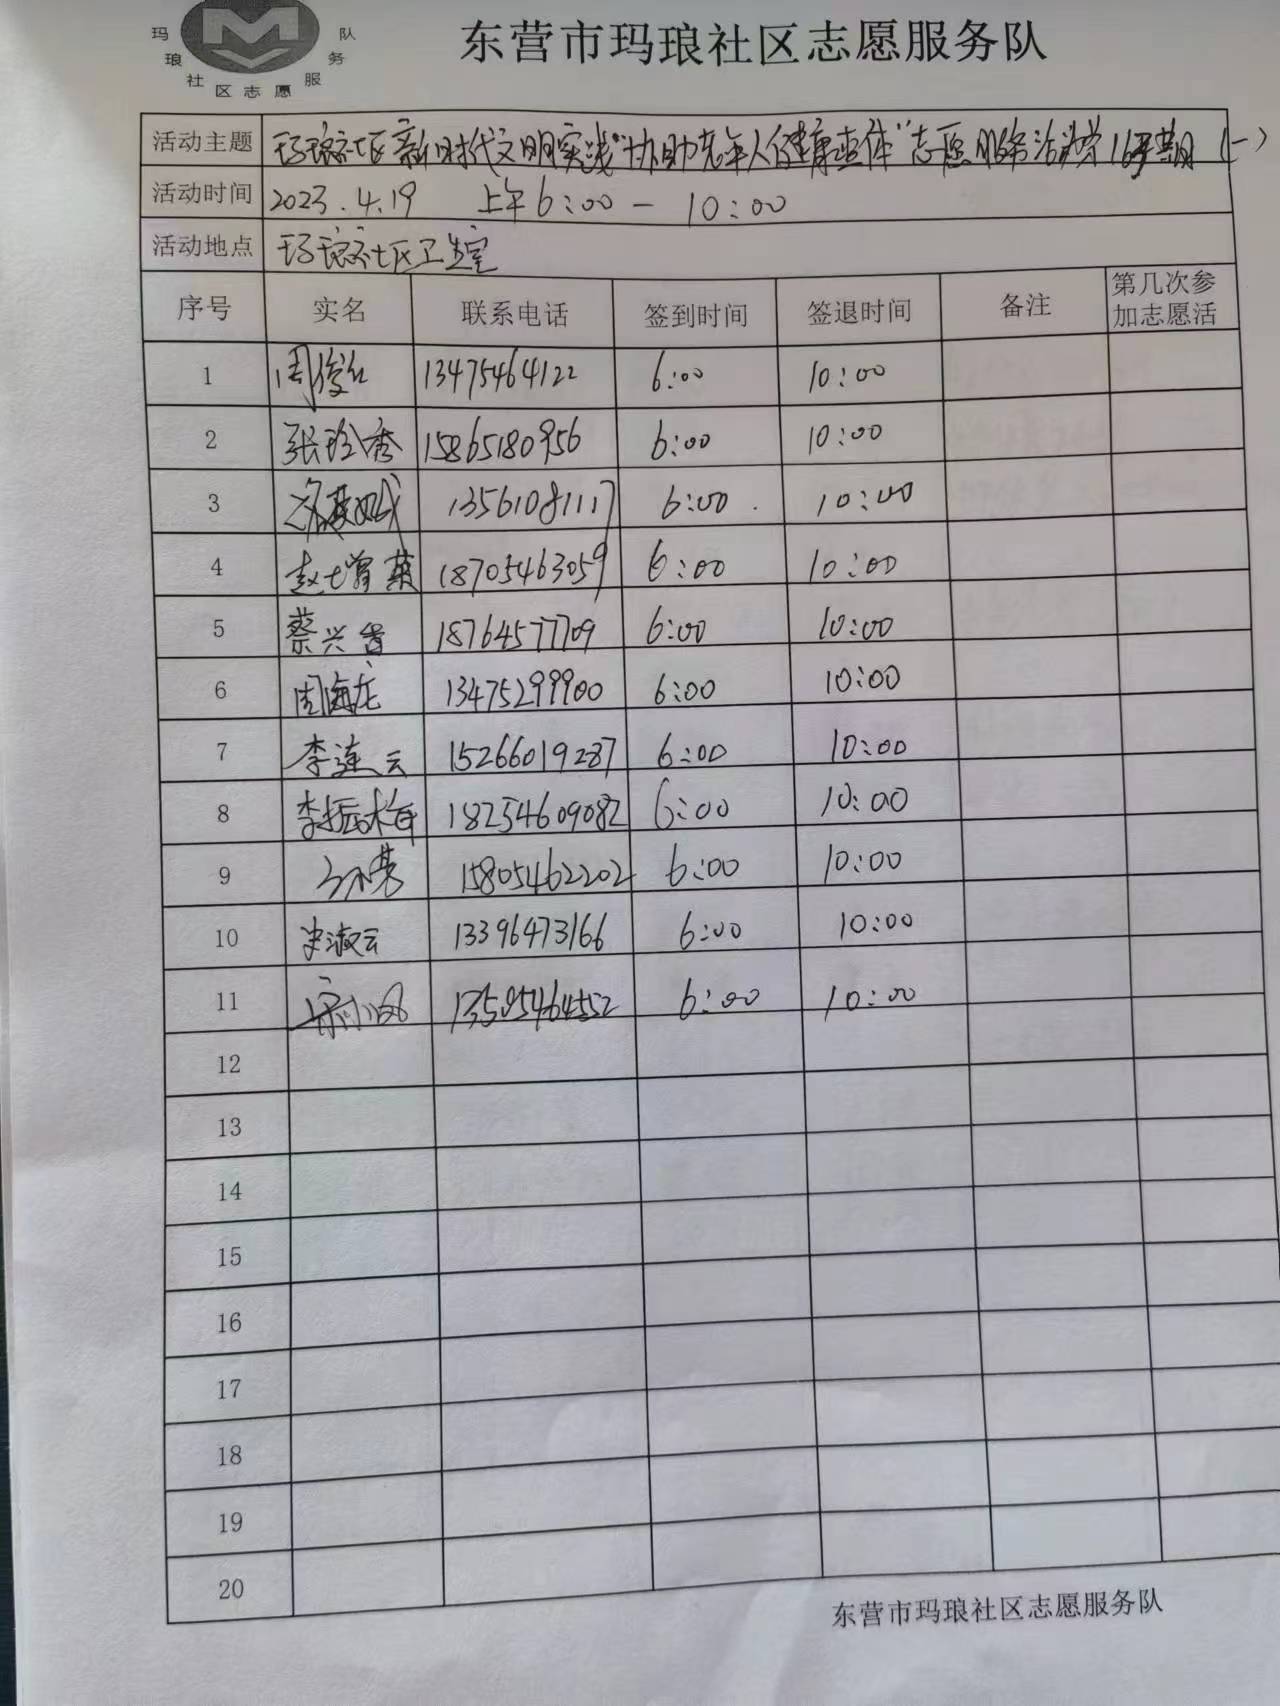 玛琅社区志愿服务队
东营市玛琅社区志愿服务队
活动主题 玛琅社区新时代文明实践"协助老年人健康查体"志愿服务活动第16期(一)
活动时间 2023.4.19 上午6:00-10:00
活动地点 玛琅社区卫生室
序号 实名 联系电话 签到时间 签退时间 备注 第几次参加志愿活
1 周俊红 13475464122 6:00 10:00
2 张玲秀 15865180956 6:00 10:00
3 13561081117 6:00 10:00
4 赵增荣 18705463059 6:00 10:00
5 蔡兴 18764577709 6:00 10:00
6 周海龙 13475299900 6:00 10:00
7 李连云 15266019287 6:00 10:00
8 李振梅 18254609082 6:00 10:00
9 15805462202 6:00 10:00
10 史淑云 13396473166 6:00 10:00
11 宋小凤 13505464552 6:00 10:00
12
13
14
15
16
17
18
19
20
东营市玛琅社区志愿服务队